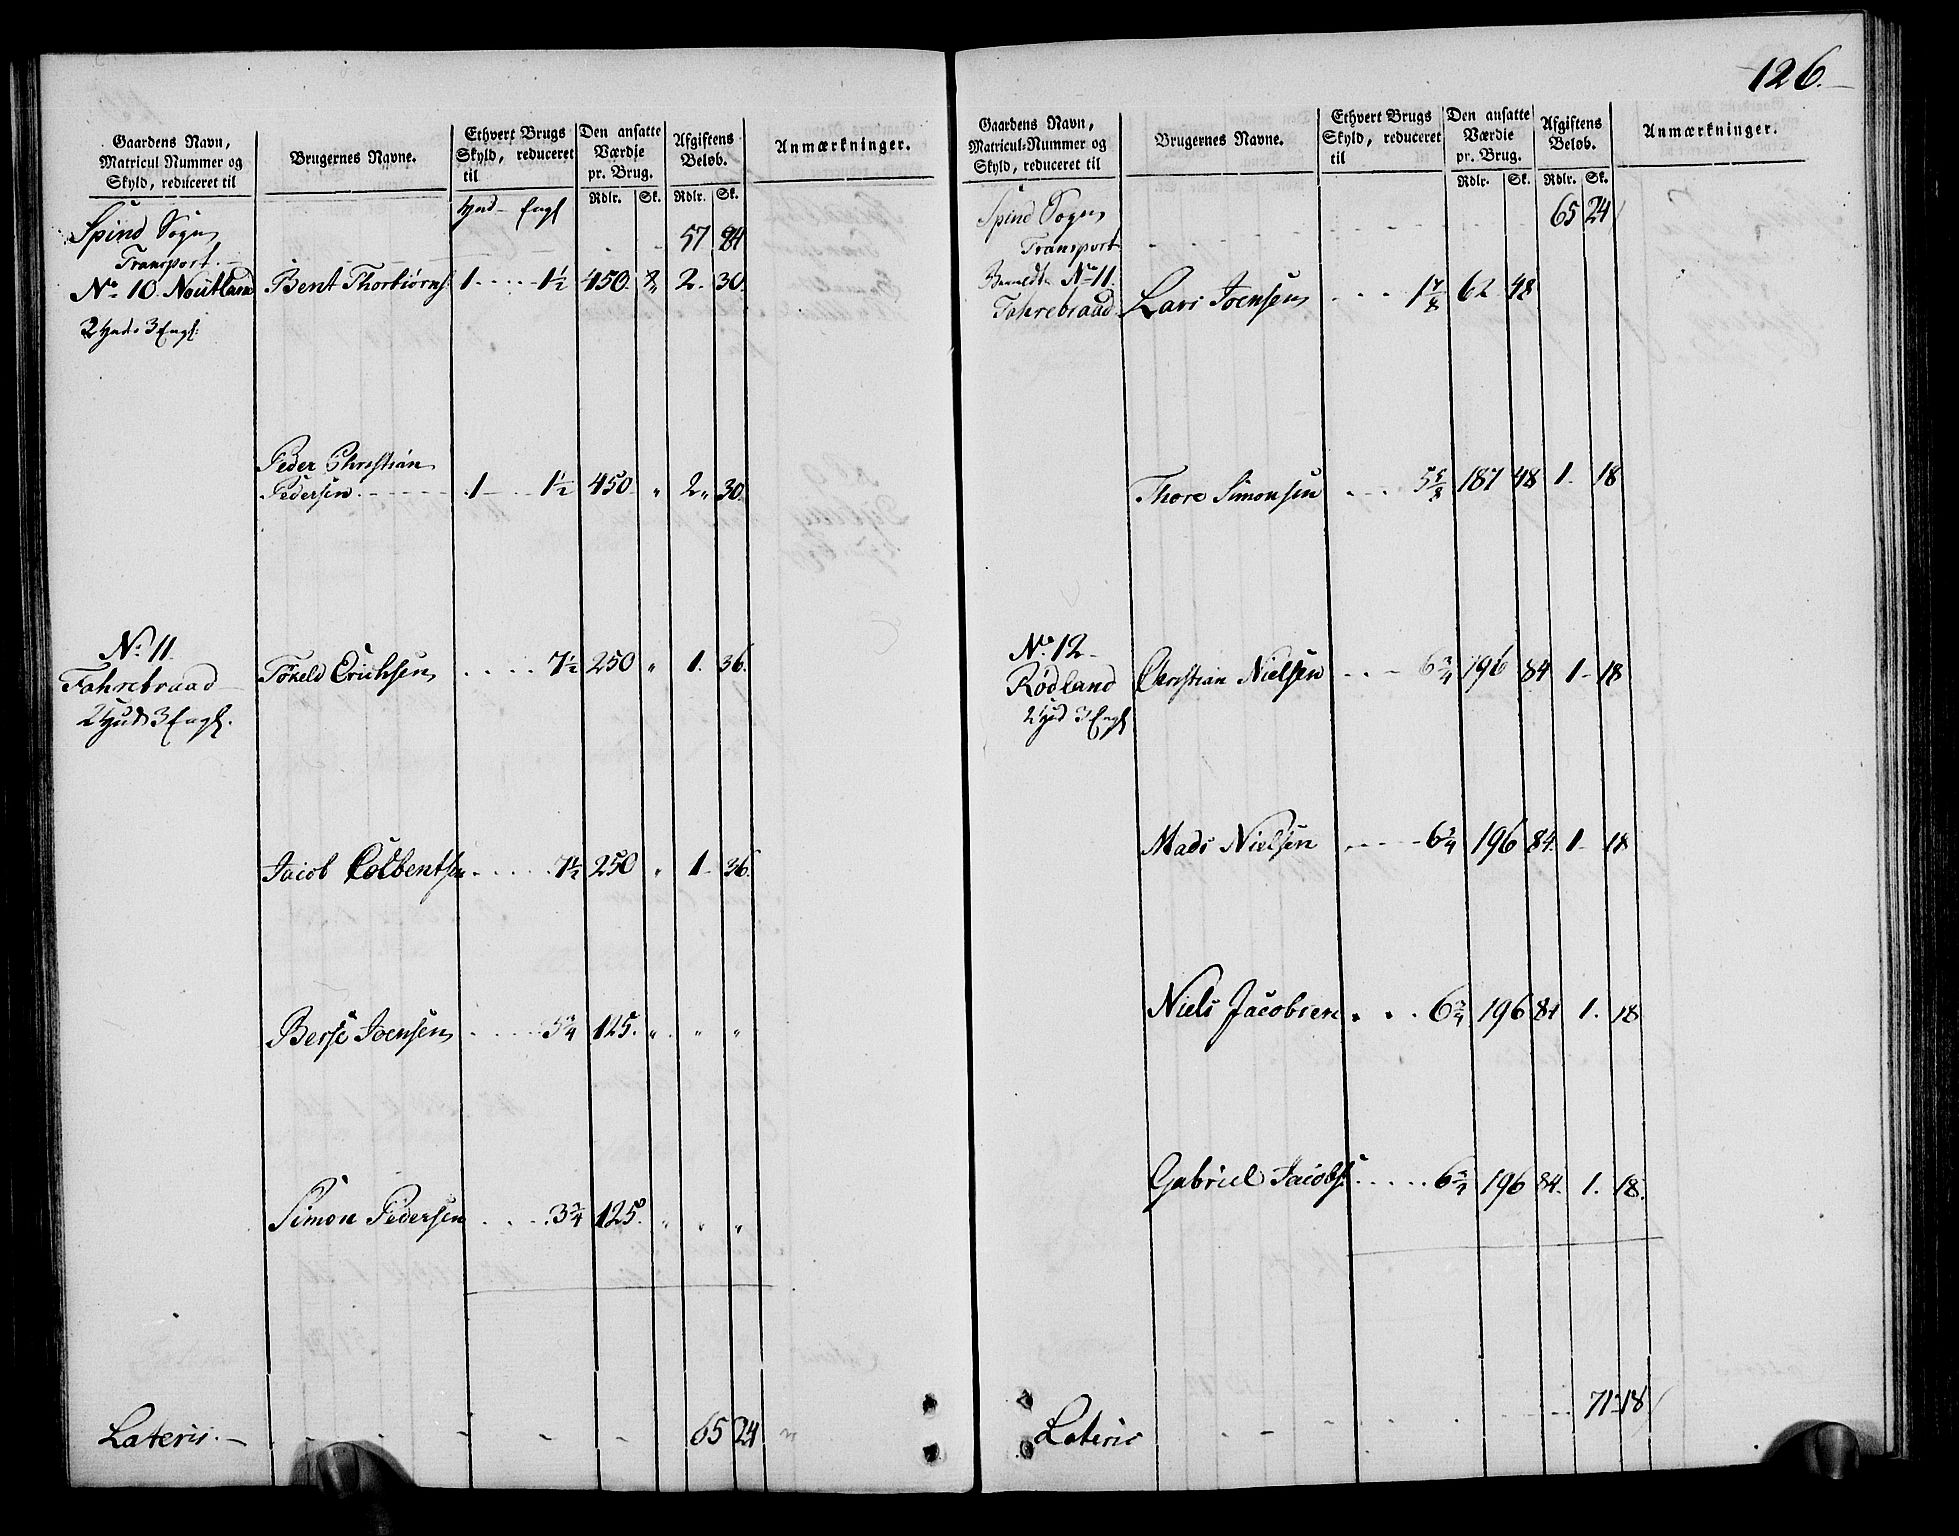 Gaardens Navn, Matricul Nummer og Skyld, reduceret til
Brugernes Navne.
Ethvert Brugs Skyld, reduceret til
Den ansatte Værdie pr. Brug.
Afgiftens Beløb.
Anmærkninger.
Rdlr. Sk. Rdlr. Sk.
Spind Sogn
Transport. 57 84
No 10 Noutland Bent Thorbiørns: 1 1½ 450 2. 30.
2 hud. 3 Engl:
Peder Christian
Pedersen 1 1½ 450 " 2 " 30.
No 11
Fahrebraad Erichsen 7½ 250 " 1. 36.
2 hud 3 Engl.
Jacob 7½ 250 " 1 36.
Berse Joensen 125. " " "
Simon Pedersen 3¾ 125. " " "
Lateris. 65 24
126.
Gaardens Navn, Matricul-Nummer og Skyld, reduceret til
Brugernes Navne.
Ethvert Brugs Skyld, reduceret til
Den ansatte Værdie pr. Brug.
Afgiftens Beløb.
Anmærkninger.
Rdlr. Sk. Rdlr. Sk.
Spind Sogn 65 24
Transport
No 11.
Fahrebraad Lars Joensen 1⅞ 62 48
Thore Simonsen 5⅝ 187 48 1 18
No 12
Rødland Christian Nielsen 6¾ 196 84 1 18
2 hud 3 Engl
Mads Nielsen 6¾ 196 84. 1 18
Niels Jacobsen 6¾ 196 84 1. 18
Gabriel Jacobs: 6¾ 196 84. 1. 18.
Lateris 71 18